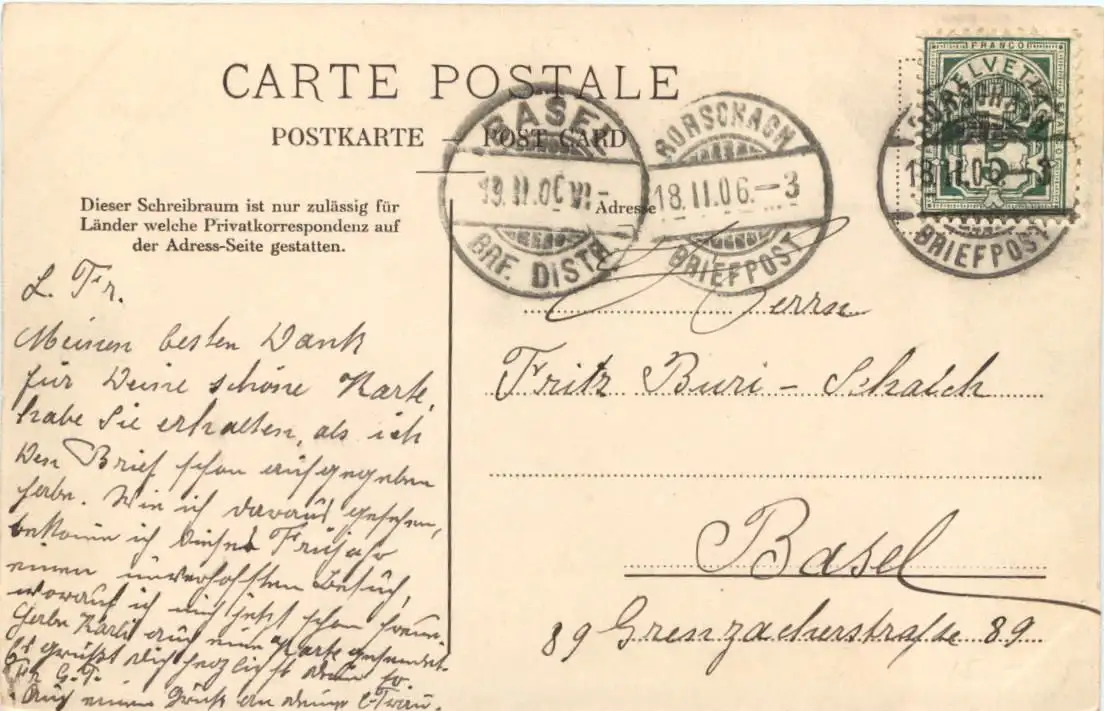 CARTE POSTALE
POSTKARTE — POST CARD
Dieser Schreibraum ist nur zulässig für
Länder welche Privatkorrespondenz auf
der Adress-Seite gestatten.
Adresse
BASEL
19.II.06.VI-
BRF. DISTR.
RORSCHACH
18.II.06.-3
BRIEFPOST
RORSCHACH
18.II.06.-3
BRIEFPOST
FRANCO
HELVETIA
5
L. Fr.
Meinen besten Dank
für Deine schöne Karte,
habe Sie erhalten, als ich
den Brief schon aufgegeben
habe. Wie ich daraus gesehen,
bekomme ich dieses Frühjahr
einen unverhofften Besuch,
worauf ich mich jetzt schon freue.
Habe Karli auch eine Karte gesendet.
Es grüßt Dich herzlichst dein
Fr. G. T.
Auch einen Gruß an deine l. Frau.
Herrn
Fritz Buri - Schalch
Basel
89 Grenzacherstraße 89